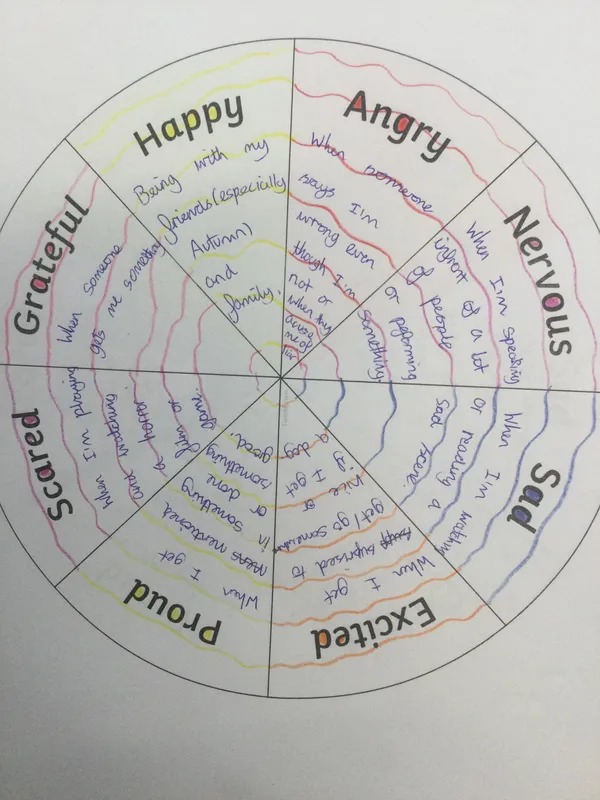 Happy
Being with my
friends(especially
Autumn)
and
family.
Angry
When someone
says I'm
wrong even
though I'm
not or
when they
me of
Nervous
When I'm speaking
infront of a lot
of people
or peforming
something
Sad
When I'm watching
or reading a
sad scene.
Excited
When I get
suprised to
get/go
nice or
if I get
a dog
Proud
When I get
mentioned
in something
or done
something
good.
Scared
When I'm playing
and watching
a horror
film or
game.
Grateful
When someone
gets me something